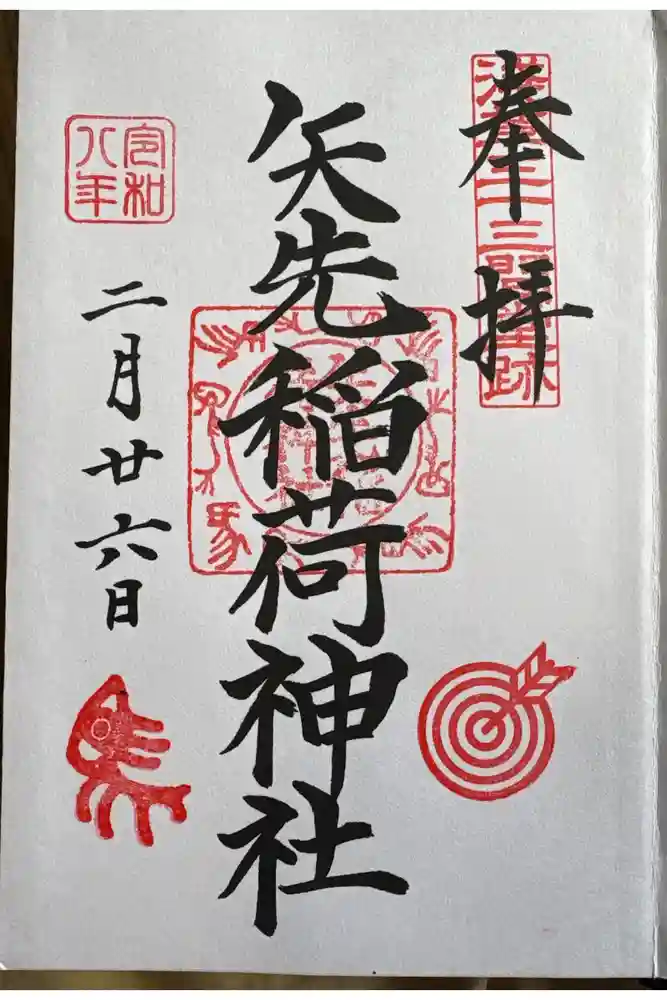 奉拝
淺草三十三間堂跡
矢先稲荷神社
令和
八年
二月廿六日
馬